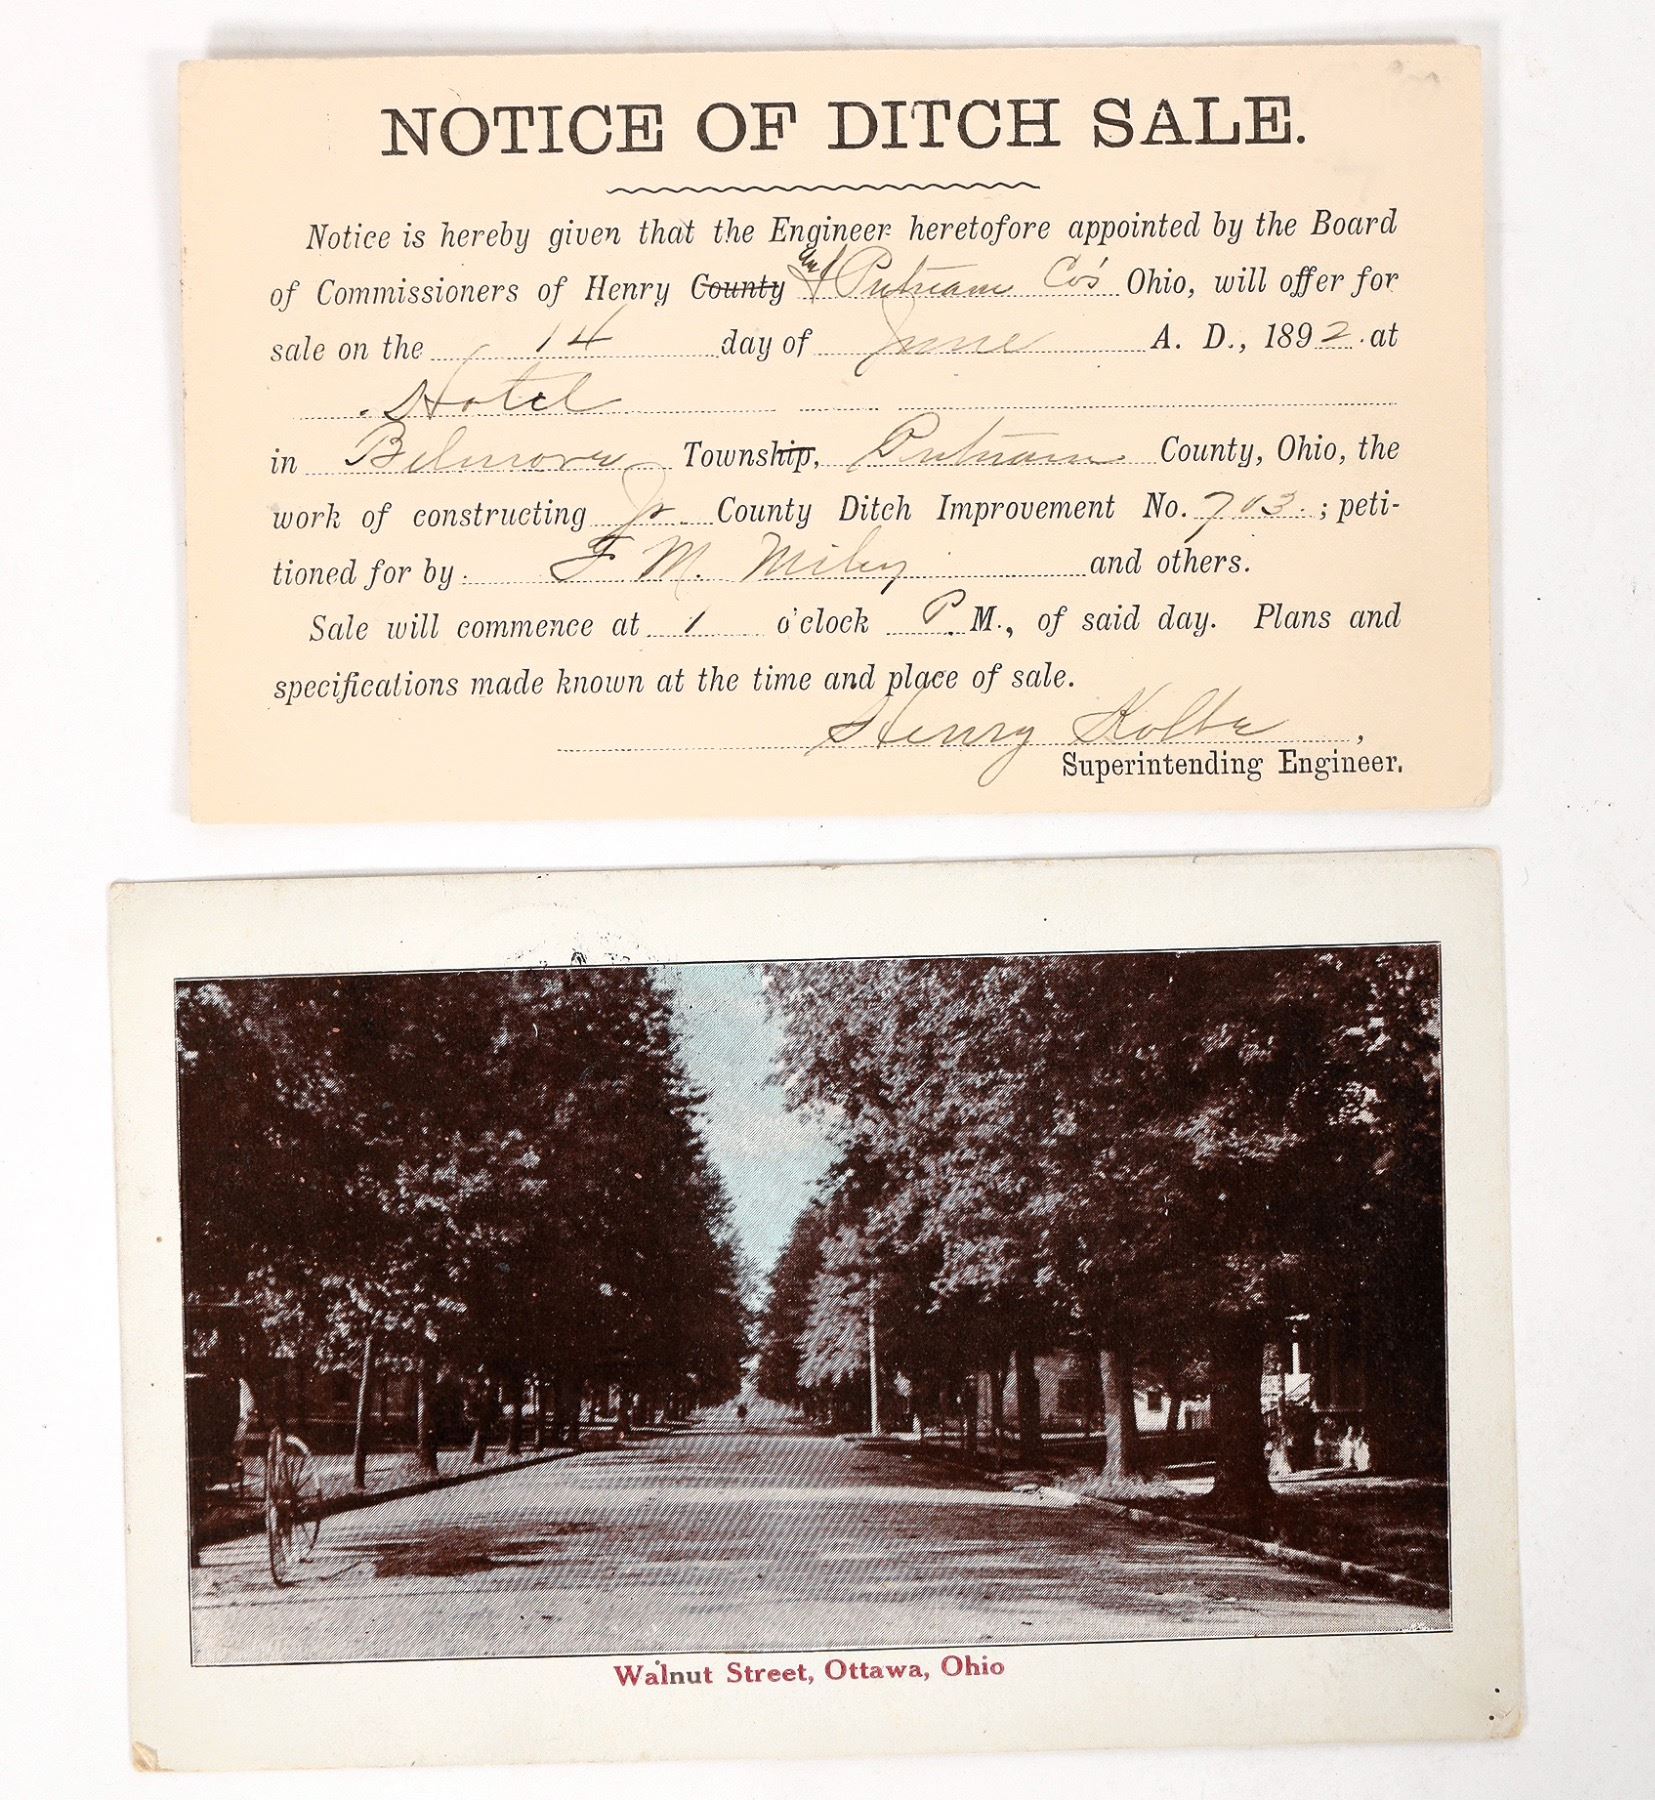 NOTICE OF DITCH SALE.
Notice is hereby given that the Engineer heretofore appointed by the Board
of Commissioners of Henry County and Putnam Co's Ohio, will offer for
sale on the 14 day of June A. D., 1892 at
Hotel
in Belmore Township, Putnam County, Ohio, the
work of constructing Jt. County Ditch Improvement No. 703; peti-
tioned for by F M. Miley and others.
Sale will commence at 1 o'clock P. M., of said day. Plans and
specifications made known at the time and place of sale.
Henry Kolbe,
Superintending Engineer.
Walnut Street, Ottawa, Ohio